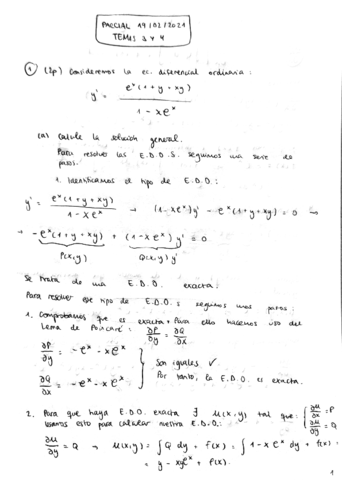 PARCIAL 19/02/2021
TEMAS 3 y 4
1 (2p) Consideremos la ec. diferencial ordinaria:
y' = e^x(1+y+xy) / 1-xe^x
(a) Calcule la solución general.
Para resolver las E.D.O.S. seguimos una serie de
pasos:
1. Identificamos el tipo de E.D.O.:
y' = e^x(1+y+xy) / 1-xe^x → (1-xe^x)y' - e^x(1+y+xy) = 0 →
→ -e^x(1+y+xy) + (1-xe^x)y' = 0
P(x,y) Q(x,y) y'
Se trata de una E.D.O. exacta:
Para resolver este tipo de E.D.O.s seguimos unos pasos:
1. Comprobamos que es exacta. Para ello hacemos uso del
Lema de Poincaré: ∂P/∂y = ∂Q/∂x
∂P/∂y = -e^x - xe^x
Son iguales ✓
Por tanto, la E.D.O. es exacta.
∂Q/∂x = -e^x - xe^x
2. Para que haya E.D.O. exacta ∃ u(x,y) tal que: { ∂u/∂x = P
Usamos esto para calcular nuestra E.D.O.:
∂u/∂y = Q → u(x,y) = ∫ Q dy + f(x) = ∫ 1-xe^x dy + f(x) =
= y - xye^x + f(x).
1